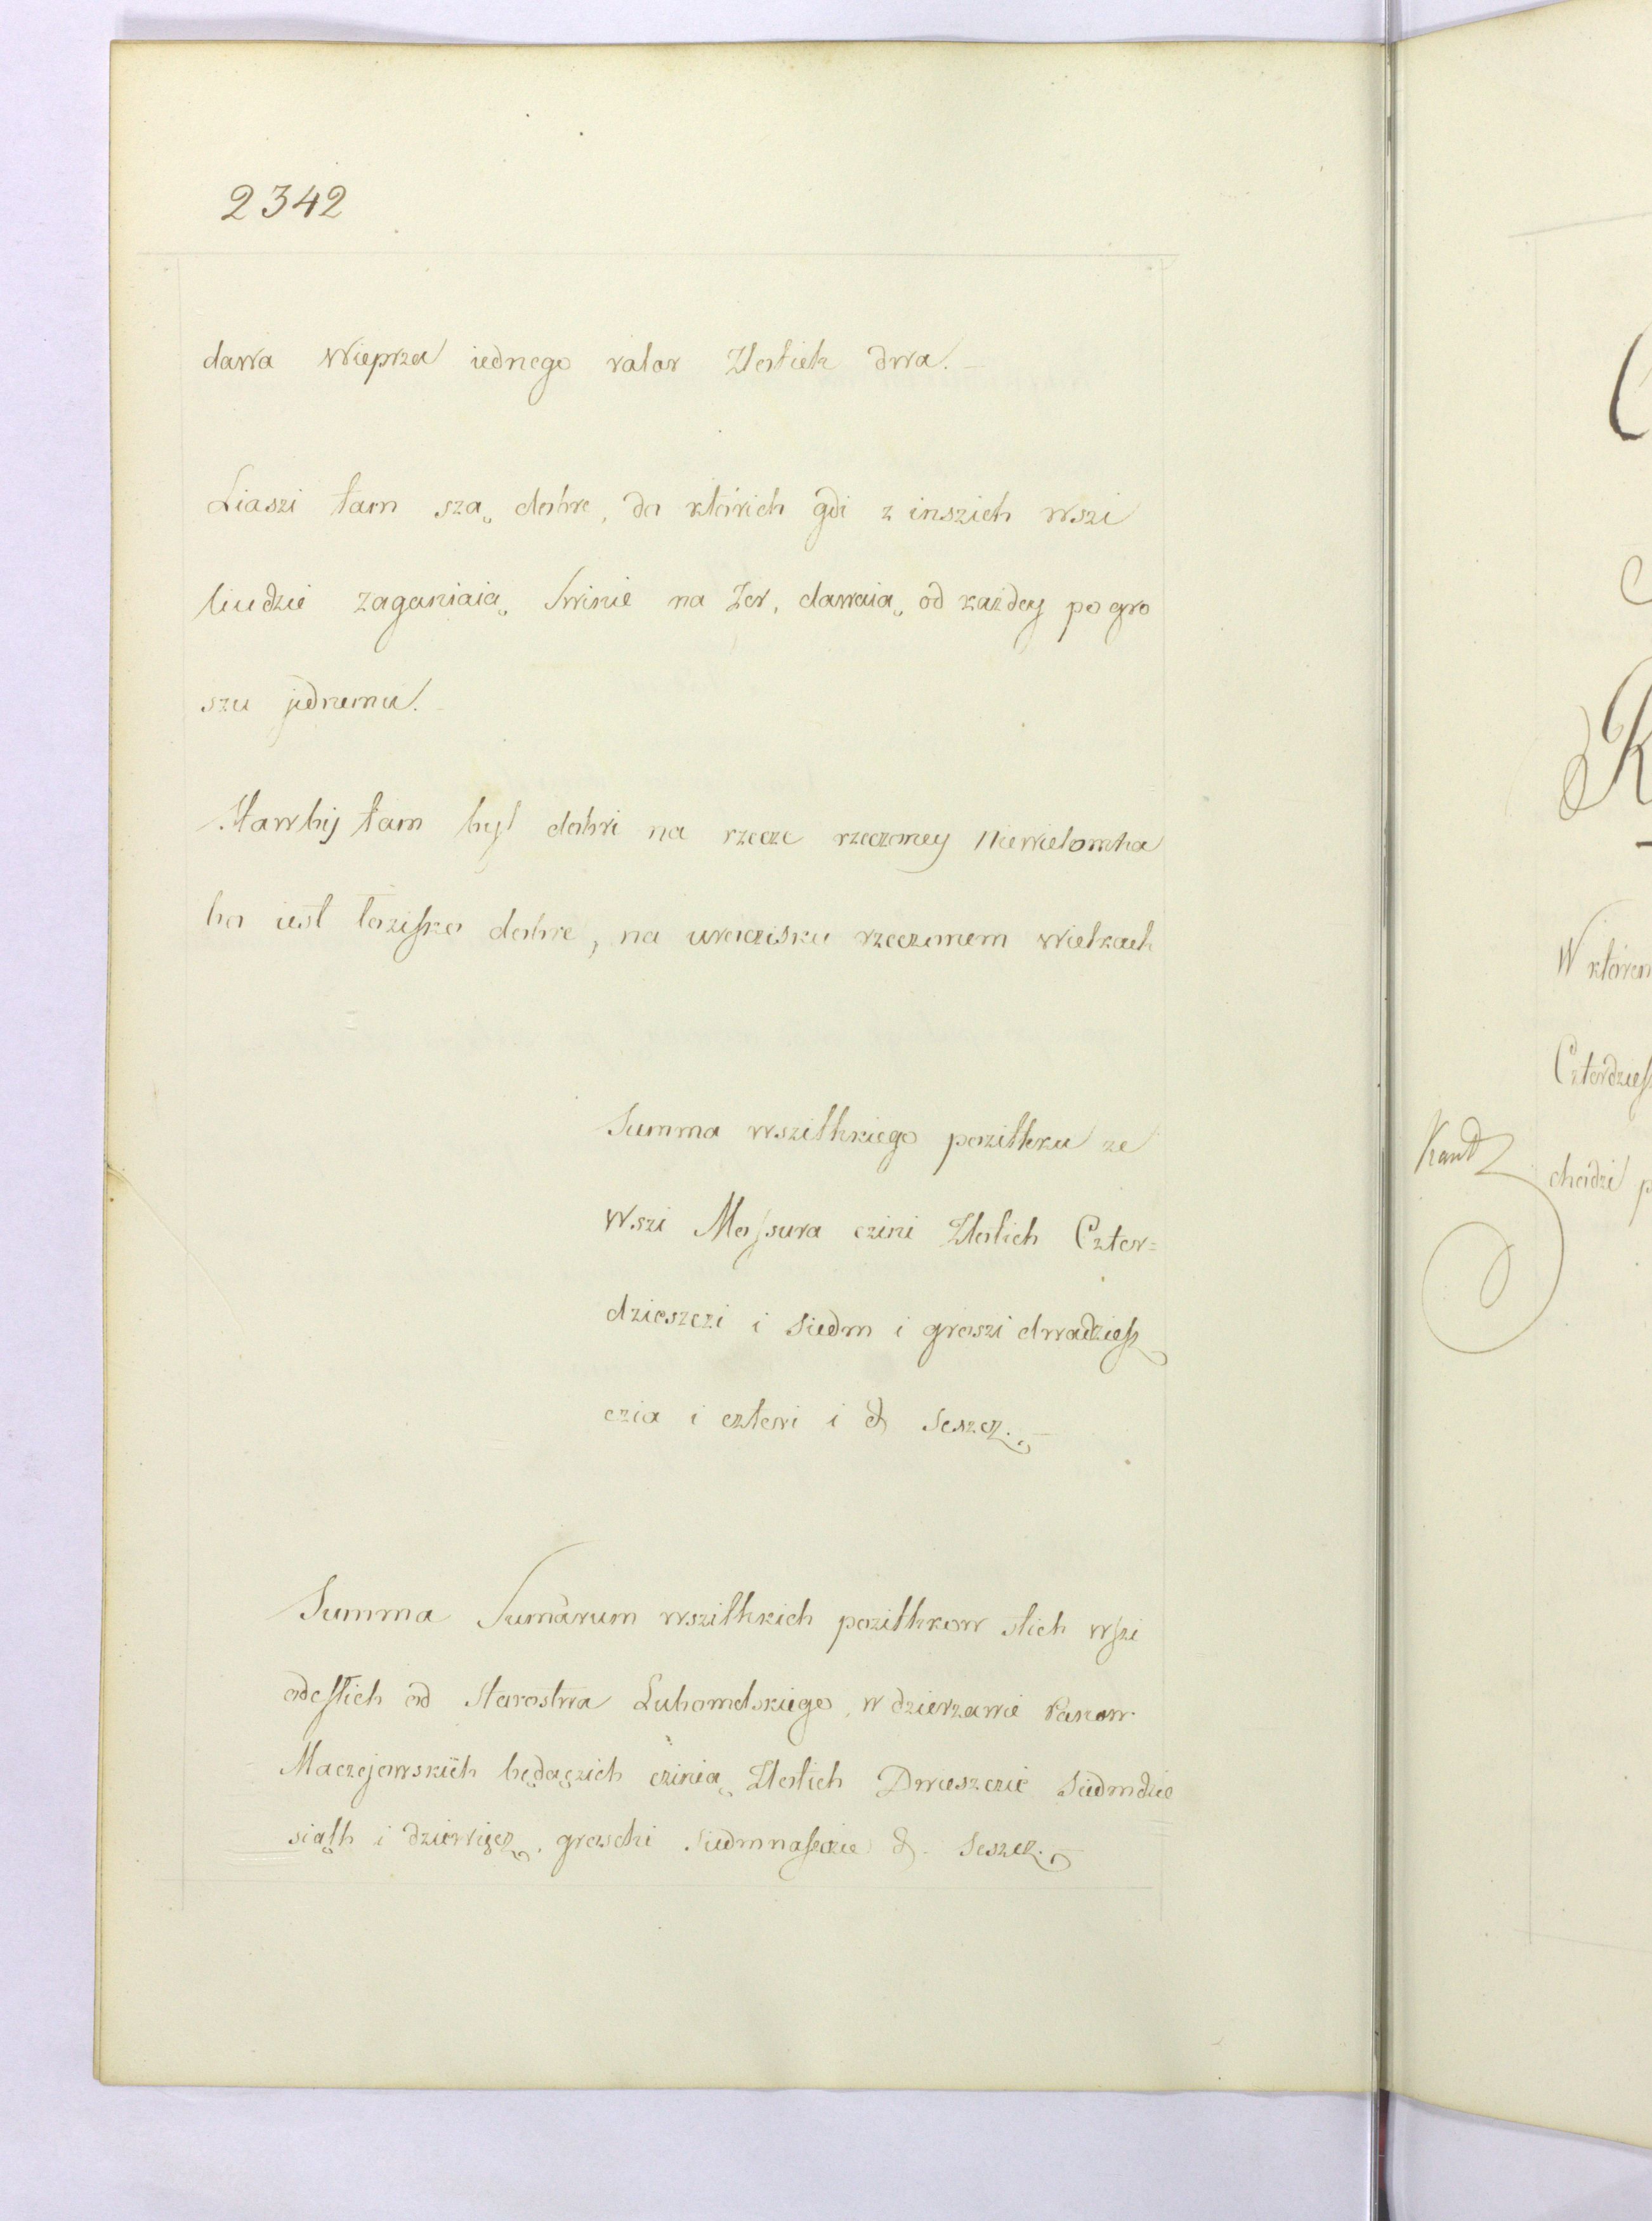 2342
dawa Wieprza iednego valor Zlotich dwa.
Liaszi tam szą dobre, do których gdi z inszich wszi
liudzie zaganiaią Swinie na Zer, dawaią od každey po gro
szu jednemu.
Stawbij tam byl dobri na rzecze rzeczoney
bo iest lozisko dobre, na uroczisku rzeczonem Wielkach
Summa wszithkiego pozithku ze
Wszi Mossura czini Zlotich Czter=
dzieszczi i Siedm i groszi dwadziesz
czia i czteri i ₰ Seszcz.
Summa Sumarum wszithkich pozithkow stich wszi
odeszlich od Starostwa Lubomelskiego, w dzierzawie Panow
Maczejowskiich będączich czinią Zlotich Dwieszczie Siedmdzie
siąth i dziewięcz, groschi Siedmnasczie ₰. Seszcz.
W którem
chodzi p